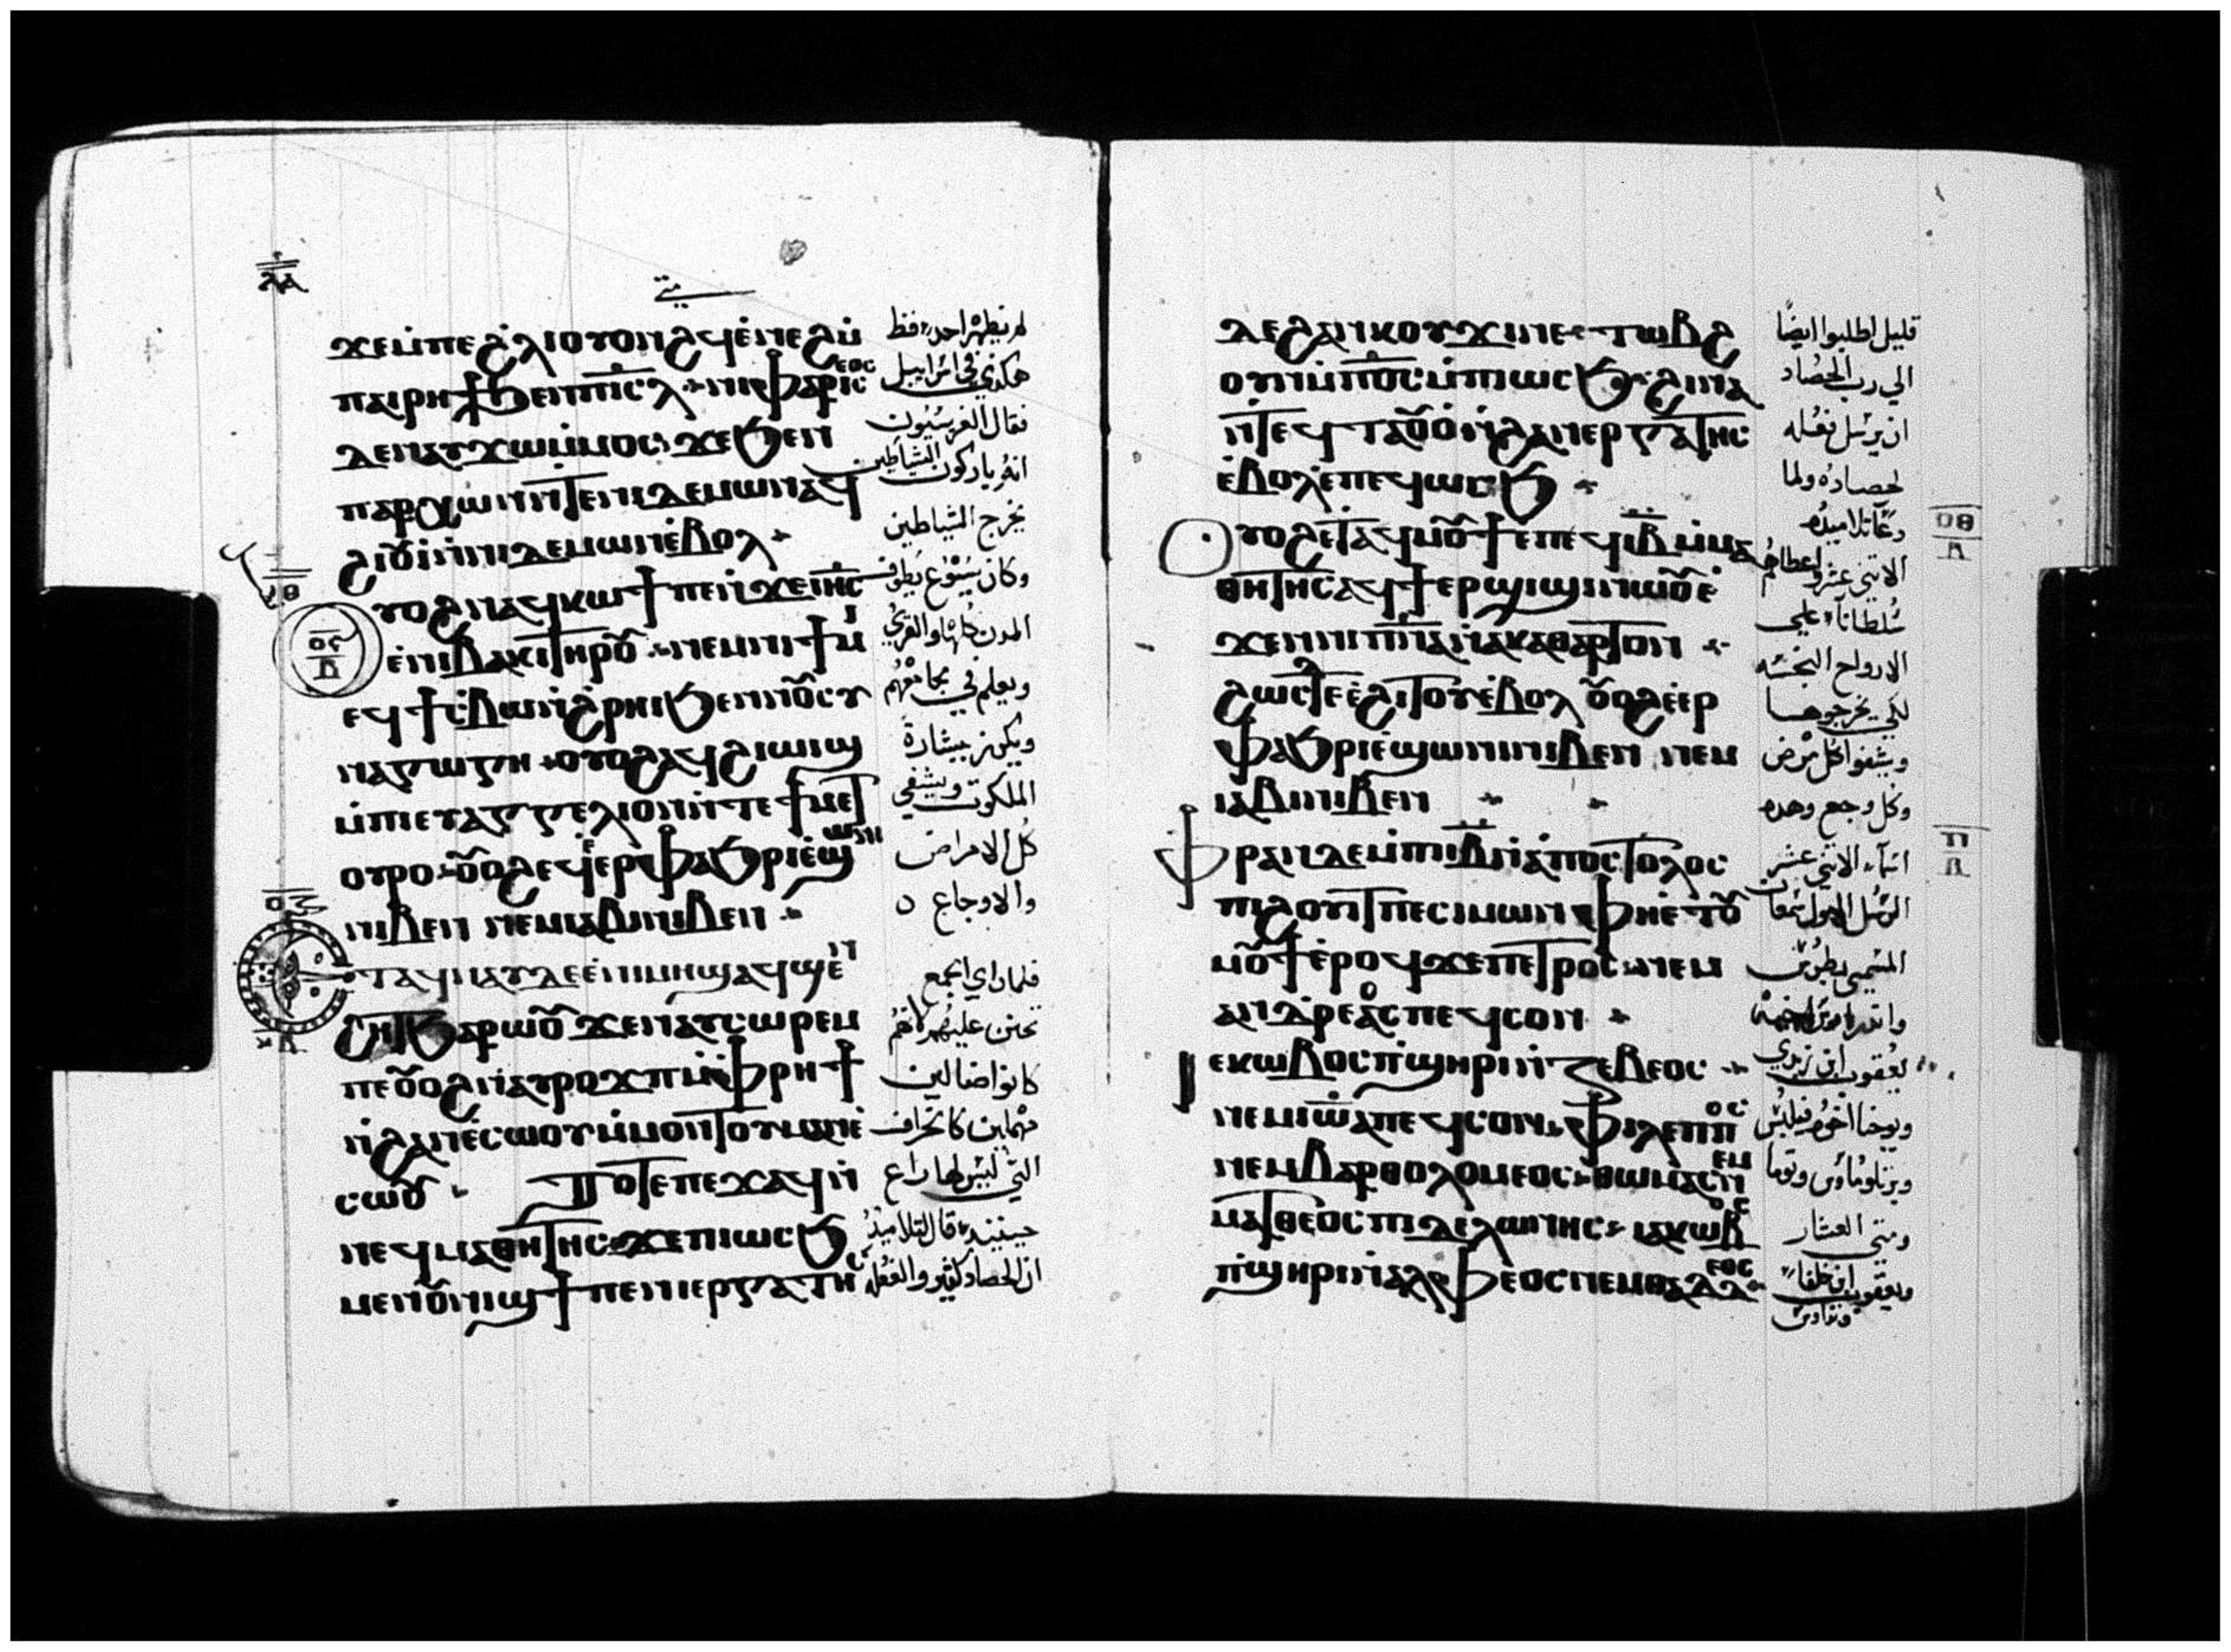 ⲗⲁ
متى
ϫⲉⲙⲡⲉϩⲗⲓ ⲟⲩⲟⲛϩϥ ⲉⲛⲉϩ ⲙ̀
ⲡⲁⲓⲣⲏϯ ϧⲉⲛ ⲡⲓⲥⲗ ⲛⲓⲫⲁⲣⲓⲥⲉⲟⲥ
ⲇⲉ ⲛⲁⲩϫⲱ ⲙ̀ⲙⲟⲥ ϫⲉ ϧⲉⲛ
ⲡⲁⲣⲭⲱⲛ ⲛ̀ⲧⲉ ⲛⲓⲇⲉⲙⲱⲛ ⲁϥ
ϩⲓⲟⲩⲓ̀ ⲛ̀ⲛⲓⲇⲉⲙⲱⲛ ⲉ̀ⲃⲟⲗ
ⲩⲟϩ ⲛⲁϥⲕⲱϯ ⲡⲉ ⲛ̀ϫⲉ ⲓⲏⲥ
ⲉ̀ⲛⲓⲃⲁⲕⲓ ⲧⲏⲣⲟⲩ ⲛⲉⲙ ⲛⲓϯⲙⲓ
ⲉϥϯⲥⲃⲱ ⲛ̀ϩⲣⲏⲓ ϧⲉⲛ ⲛⲟⲩⲥⲩ
ⲛⲁⲅⲱⲅⲏ ⲟⲩⲟϩ ⲁϥϩⲓⲱⲓϣ
ⲙ̀ⲡⲓⲉⲩⲁⲅⲅⲉⲗⲓⲟⲛ ⲛ̀ⲧⲉ ϯⲙⲉⲧ
ⲟⲩⲣⲟ ⲟⲩⲟϩ ⲉϥⲉⲣⲫⲁϧⲣⲓ ⲉ̀ϣⲱⲛⲓ
ⲛⲓⲃⲉⲛ ⲛⲉⲙ ⲓⲁⲃⲓ ⲛⲓⲃⲉⲛ
ⲧⲁϥⲛⲁⲩ ⲇⲉ ⲉ̀ⲛⲓⲙⲏϣ ⲁϥϣⲉⲛ
ϩⲏⲧ ϧⲁⲣⲱⲟⲩ ϫⲉ ⲛⲁⲩⲥⲱⲣⲉⲙ
ⲡⲉ ⲟⲩⲟϩ ⲛⲁⲩⲣⲟϫⲡ ⲙ̀ⲫⲣⲏϯ
ⲛ̀ϩⲁⲛⲉ̀ⲥⲱⲟⲩ ⲙ̀ⲙⲟⲛⲧⲟⲩ ⲙⲁⲛⲉ̀
ⲥⲱⲟⲩ ⲧⲟⲧⲉ ⲡⲉϫⲁϥ ⲛ̀
ⲛⲉϥⲙⲁⲑⲏⲧⲏⲥ ϫⲉ ⲡⲓⲱⲥϧ
ⲙⲉⲛ ⲟⲩⲛⲓϣϯ ⲡⲉ ⲛⲓⲉⲣⲅⲁⲧⲏⲥ
لم يظهر احد قط
هكذي في اسراييل
فقال الفريسيون
انه باركون الشياطين
يخرج الشياطين
وكان يسوع يطوف
المدن كلها والقرى
ويعلم في مجامعهم
ويكرز ببشارة
الملكوت ويشفي
كل الامراض
والاوجاع
فلما راي الجمع
تحنن عليهم لانهم
كانوا ضالين
مهملين كالخراف
التي ليس لها راع
حينيذ قال لتلاميذه
ان الحصاد كثير والفعله
ⲇⲉ ϩⲁⲛⲕⲟⲩϫⲓ ⲛⲉ ⲧⲱⲃϩ
ⲟⲩⲛ ⲙ̀ⲡⲟⲥ ⲙ̀ⲡⲓⲱⲥϧ ϩⲓⲛⲁ
ⲛ̀ⲧⲉϥⲧⲁⲟⲩⲟ̀ ⲛ̀ϩⲁⲛⲉⲣⲅⲁⲧⲏⲥ
ⲉ̀ⲃⲟⲗ ⲉ̀ⲡⲉϥⲱⲥϧ
ⲟⲩⲟϩ ⲉⲧⲁϥⲙⲟⲩϯ ⲉⲡⲉϥⲓⲃ ⲙ̀ⲙⲁ
ⲑⲏⲧⲏⲥ ⲁϥϯⲉⲣϣⲓϣⲓ ⲛⲱⲟⲩ ⲉ̀
ϫⲉⲛ ⲛⲓⲡⲛⲁ ⲛ̀ⲁⲕⲁⲑⲁⲣⲧⲟⲛ
ϩⲱⲥⲧⲉ ⲉ̀ϩⲓⲧⲟⲩ ⲉ̀ⲃⲟⲗ ⲟⲩⲟϩ ⲉ̀ⲉⲣ
ⲫⲁϧⲣⲓ ⲉ̀ϣⲱⲛⲓ ⲛⲓⲃⲉⲛ ⲛⲉⲙ
ⲓⲁⲃⲓ ⲛⲓⲃⲉⲛ
ⲫⲣⲁⲛ ⲇⲉ ⲙ̀ⲡⲓⲓⲃ ⲛ̀ⲁ̀ⲡⲟⲥⲧⲟⲗⲟⲥ
ⲡⲓϩⲟⲩⲓⲧ ⲡⲉ ⲥⲓⲙⲱⲛ ⲫⲏ ⲉ̀ⲧⲟⲩ
ⲙⲟⲩϯ ⲉ̀ⲣⲟϥ ϫⲉ ⲡⲉⲧⲣⲟⲥ ⲛⲉⲙ
ⲁⲛⲇⲣⲉⲁⲥ ⲡⲉϥⲥⲟⲛ
ⲓⲉⲕⲱⲃⲟⲥ ⲡ̀ϣⲏⲣⲓ ⲛ̀ⲍⲉⲃⲉⲇⲉⲟⲥ
ⲛⲉⲙ ⲓⲱⲁ ⲡⲉϥⲥⲟⲛ ⲫⲓⲗⲉⲡⲡⲟⲥ
ⲛⲉⲙ ⲃⲁⲣⲑⲟⲗⲟⲙⲉⲟⲥ ⲑⲱⲙⲁⲥ ⲛⲉⲙ
ⲙⲁⲧⲑⲉⲟⲥ ⲡⲓⲧⲉⲗⲱⲛⲏⲥ ⲓⲁⲕⲱⲃⲟⲥ
ⲡ̀ϣⲏⲣⲓ ⲛ̀ⲁⲗⲫⲉⲟⲥ ⲛⲉⲙ ⲑⲁⲇⲇⲉⲟⲥ
قليل اطلبوا ايضا
الي رب الحصاد
ان يرسل فعله
لحصاده ولما
دعا تلاميذه
الاثني عشر واعطاهم
سلطانا علي
الارواح النجسه
لكي يخرجوها
ويشفوا كل مرض
وكل وجع وهذه
اسماء الاثني عشر
الرسل الاول سمعان
المسمى بطرس
يعقوب ابن زبدي
ويوحنا اخوه فيلبس
وبرتلوماوس وتوما
ومتي العشار
ويعقوب ابن حلفا
وتداوس
ⲟⲑ
ⲡ